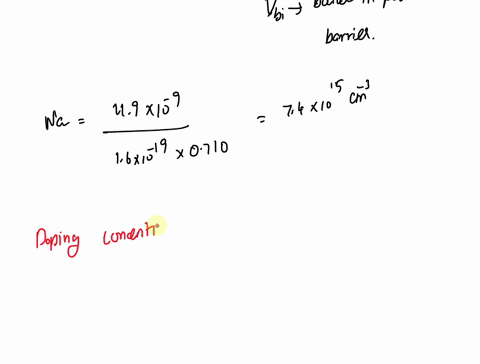 Vbi → built in po
barrier.
Na = 4.9 × 10^-9 / 1.6 × 10^-19 × 0.710 = 7.4 × 10^15 cm^-3
Doping concent